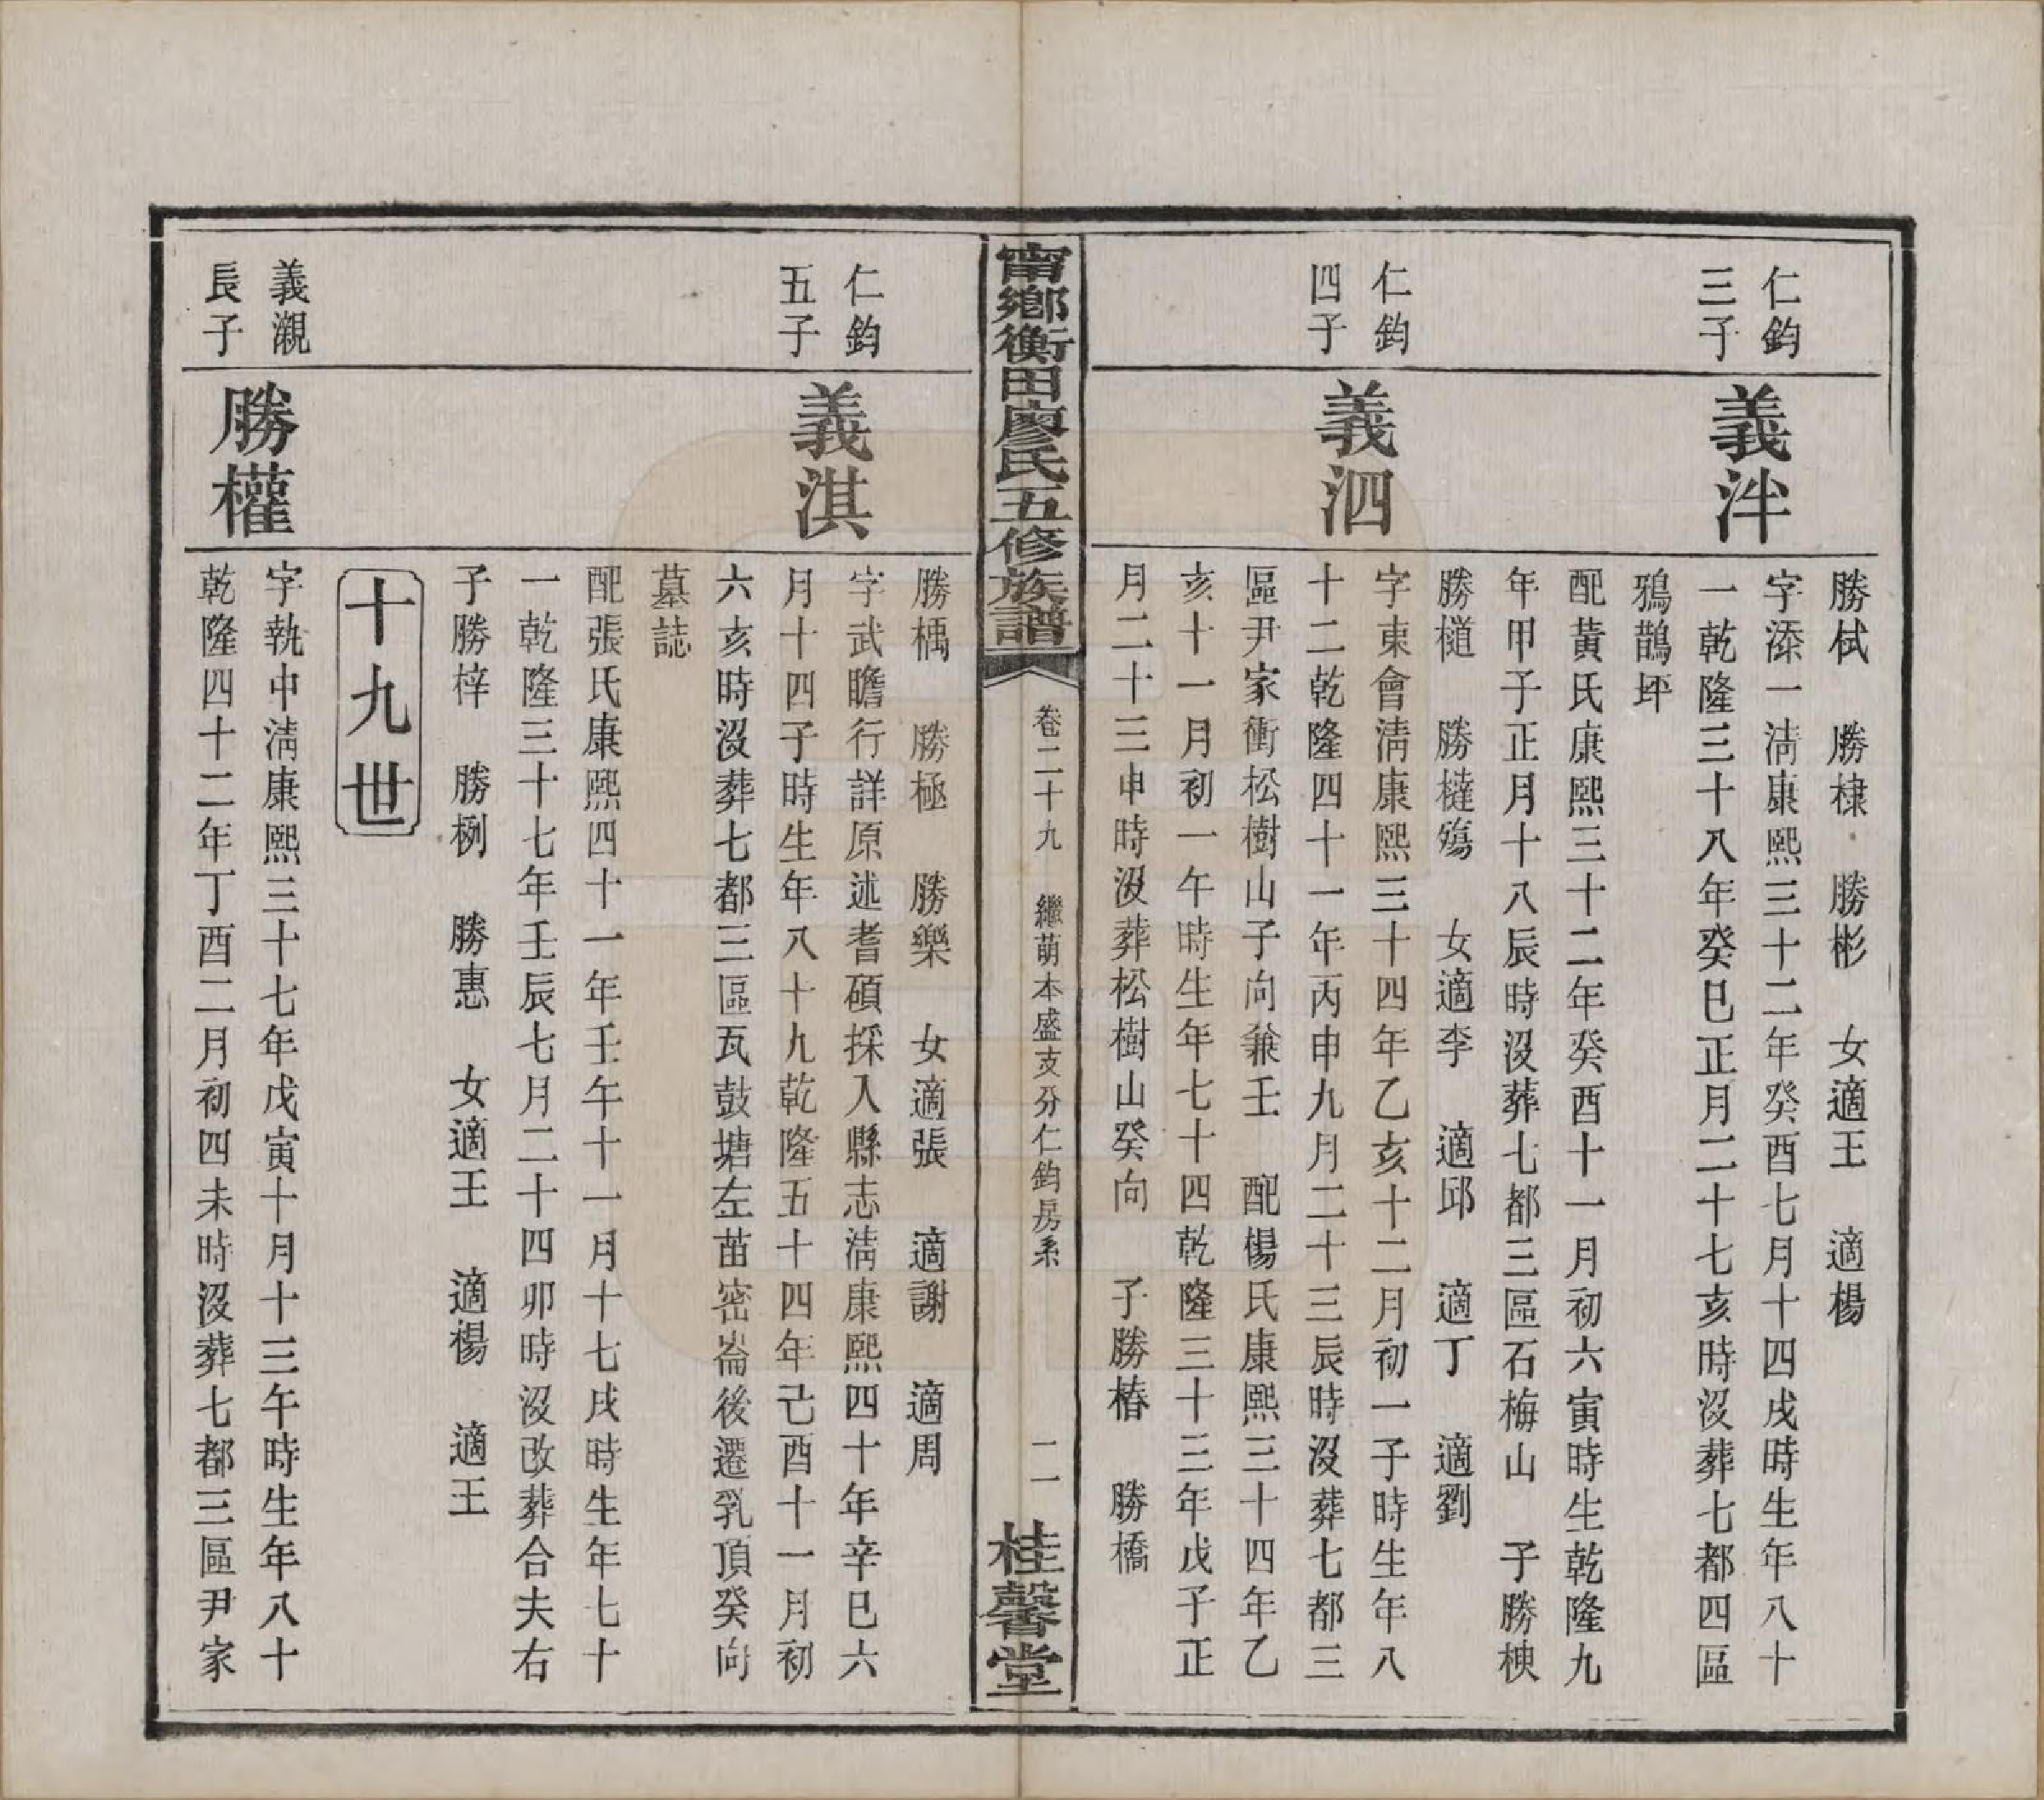 勝栻　勝棣　勝彬　女適王　適楊
仁鈞
三子
義泮
字添一淸康熙三十二年癸酉七月十四戌時生年八十
一乾隆三十八年癸巳正月二十七亥時沒葬七都四區
鴉鵲坪
配黃氏康熙三十二年癸酉十一月初六寅時生乾隆九
年甲子正月十八辰時沒葬七都三區石梅山　子勝楝
勝槌　勝槤殤　女適李　適邱　適丁　適劉
仁鈞
四子
義泗
字東會淸康熙三十四年乙亥十二月初一子時生年八
十二乾隆四十一年丙申九月二十三辰時沒葬七都三
區尹家衝松樹山子向兼壬　配楊氏康熙三十四年乙
亥十一月初一午時生年七十四乾隆三十三年戊子正
月二十三申時沒葬松樹山癸向　子勝椿　勝橋
甯鄉衡田廖氏五修族譜
卷二十九　繼萌本盛支分仁鈞房系
二
桂馨堂
勝楀　勝極　勝樂　女適張　適謝　適周
仁鈞
五子
義淇
字武瞻行詳原述耆碩採入縣志淸康熙四十年辛巳六
月十四子時生年八十九乾隆五十四年己酉十一月初
六亥時沒葬七都三區瓦鼓塘左苗密崙後遷乳頂癸向
墓誌
配張氏康熙四十一年壬午十一月十七戌時生年七十
一乾隆三十七年壬辰七月二十四卯時沒改葬合夫右
子勝梓　勝栵　勝惠　女適王　適楊　適王
十九世
義瀙
長子
勝權
字執中淸康熙三十七年戊寅十月十三午時生年八十
乾隆四十二年丁酉二月初四未時沒葬七都三區尹家